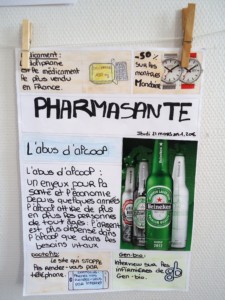 Médicament:
Doliprane
est le médicament
le plus vendu
en France.
-50%
Sur les
montres
Mondaine
PHARMASANTE
L'abus d'alcool
L'abus d'alcool:
un enjeux pour la
santé et l'économie
Depuis quelques années
l'alcool attire de plus
en plus les personnes
de tout âges. L'argent
est plus dépensé dans
l'alcool que dans les
besoins vitaux
Heineken
le site qui stoppe
les rendez-vous par
téléphone:
Gen-bio:
Interview sur les
infirmières de
Gen-bio.
gb